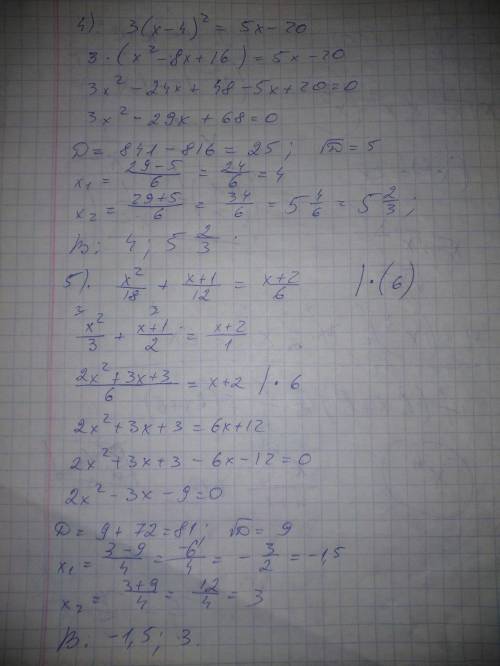 4). 3(x-4)² = 5x-20
3·(x²-8x+16)=5x-20
3x²-24x+48-5x+20=0
3x²-29x+68=0
D= 841-816=25; √D=5
x₁= (29-5)/6 = 24/6 = 4
x₂= (29+5)/6 = 34/6 = 5 4/6 = 5 2/3;
В: 4; 5 2/3.
5). x²/18 + (x+1)/12 = (x+2)/6 |·(6)
x²/3 + (x+1)/2 = (x+2)/1
(2x²+3x+3)/6 = x+2 |·6
2x²+3x+3=6x+12
2x²+3x+3-6x-12=0
2x²-3x-9=0
D=9+72=81; √D=9
x₁= (3-9)/4 = -6/4 = -3/2 = -1,5
x₂= (3+9)/4 = 12/4 = 3
В. -1,5; 3.